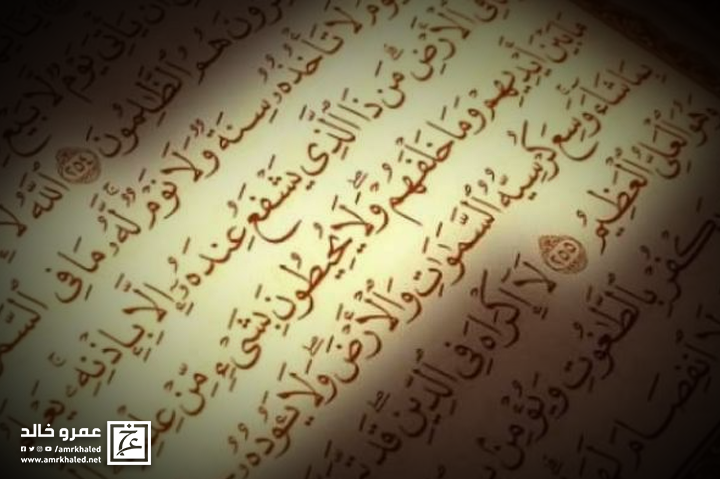 أَن يَأْتِيَ يَوْمٌ لَّا بَيْعٌ
رُونَ هُمُ ٱلظَّٰلِمُونَ ٢٥٤ ٱللَّهُ لَآ
لَا تَأْخُذُهُۥ سِنَةٌ وَلَا نَوْمٌ لَّهُۥ مَا فِي ٱلسَّمَ
فِي ٱلْأَرْضِ مَن ذَا ٱلَّذِي يَشْفَعُ عِندَهُۥٓ إِلَّا بِإِذْنِهِۦ يَعْ
مَا بَيْنَ أَيْدِيهِمْ وَمَا خَلْفَهُمْ وَلَا يُحِيطُونَ بِشَيْءٍ مِّنْ عِ
بِمَا شَآءَ وَسِعَ كُرْسِيُّهُ ٱلسَّمَٰوَٰتِ وَٱلْأَرْضَ وَلَا يَـُٔودُهُۥ
وَهُوَ ٱلْعَلِيُّ ٱلْعَظِيمُ ٢٥٥ لَآ إِكْرَاهَ فِي ٱلدِّينِ قَد تَّ
يَكْفُرْ بِٱلطَّٰغُوتِ وَيُؤْمِنۢ
لَا ٱنفِصَامَ لَ
عمرو خالد
/amrkhaled
www.amrkhaled.net